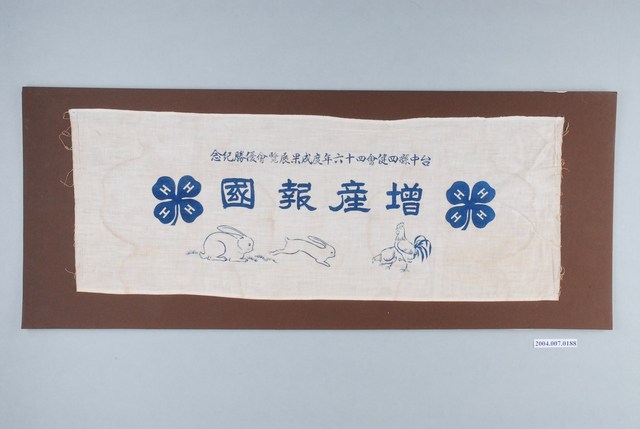 台中縣四健會四十六年度成果展覽會優勝紀念
增產報國
H H H H
H H H H
2004.007.0188